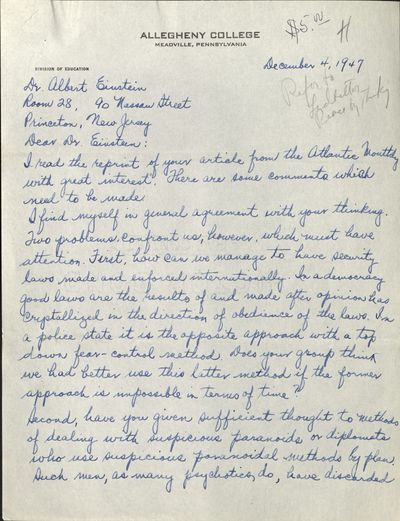 ALLEGHENY COLLEGE
MEADVILLE, PENNSYLVANIA
$5.00
DIVISION OF EDUCATION
December 4, 1947
Dr. Albert Einstein
Room 28, 90 Nassau Street
Princeton, New Jersy
Refer to
Peace by
Dear Dr. Einstein:
I read the reprint of your article from the Atlantic Monthly
with great interest. There are some comments which
need to be made.
I find myself in general agreement with your thinking.
Two problems confront us, however, which must have
attention. First, how can we manage to have security
laws made and enforced internationally. In a democracy
good laws are the results of and made after opinion has
crystallized in the direction of obedience of the laws. In
a police state it is the opposite approach with a top
down fear-control method. Does your group think
we had better use this latter method if the former
approach is impossible in terms of time?
Second, have you given sufficient thought to methods
of dealing with suspicious paranoids or diplomats
who use suspicious paranoidal methods by plan.
Such men, as many psychotics do, have discarded